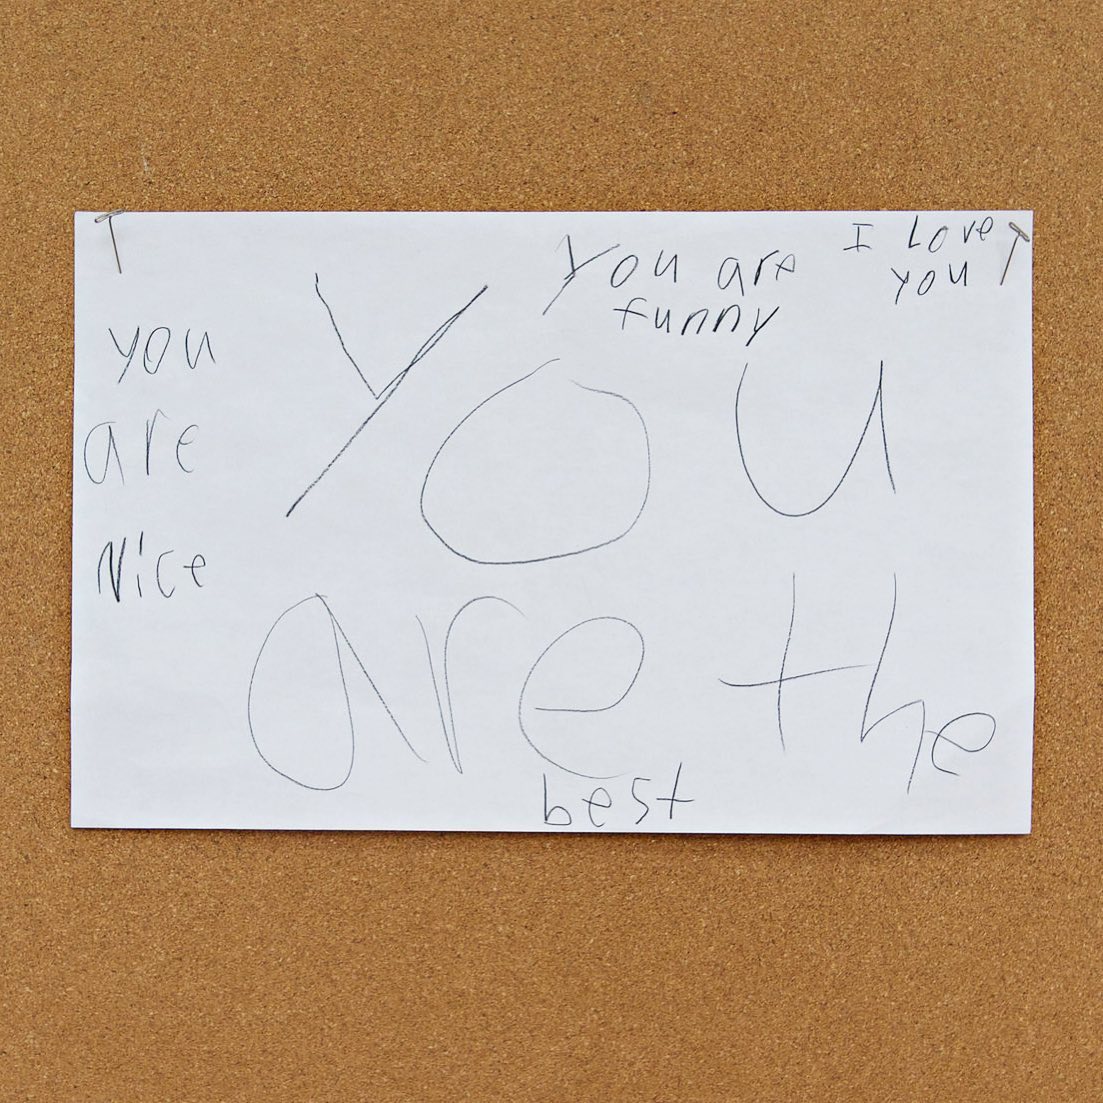 I Love
you
You are
funny
you
are
Nice
You
are the
best